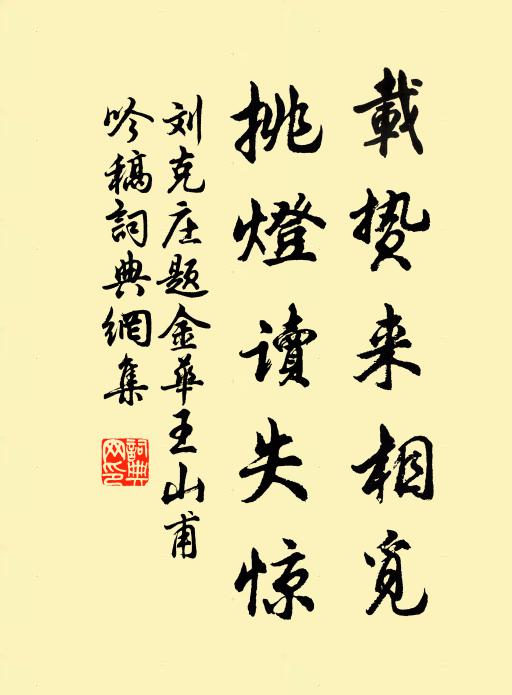 載贽来相覓
挑燈读失惊
刘克庄题金华王山甫
吟稿詞典網集
詞典网印